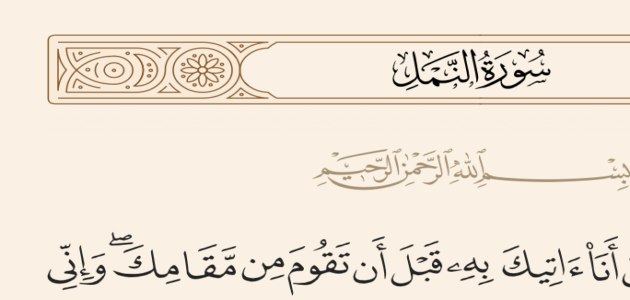 سُورَةُ النَّمۡلِ
بِسۡمِ ٱللَّهِ ٱلرَّحۡمَٰنِ ٱلرَّحِيمِ
أَنَا۠ ءَاتِيكَ بِهِۦ قَبۡلَ أَن تَقُومَ مِن مَّقَامِكَۖ وَإِنِّي